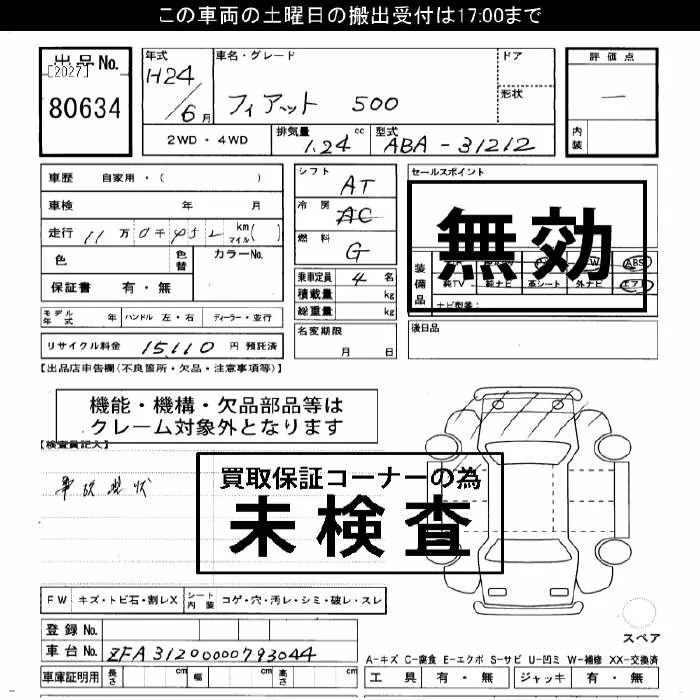 この車両の土曜日の搬出受付は17:00まで
出品No.
[2027]
80634
年式
H24/6月
車名・グレード
フィアット 500
ドア
形状
2WD・4WD
排気量 1.24 cc
型式 ABA-31212
評価点
—
内装
車歴 自家用・( )
車検 年 月
走行 11万0千452 km マイル( )
色
色替
カラーNo.
保証書 有・無
モデル年式 年
ハンドル 左・右
ディーラー・並行
リサイクル料金 15,110 円 預託済
シフト AT
冷房 AC
燃料 G
乗車定員 4 名
積載量 kg
総重量 kg
名変期限
月 日
セールスポイント
無効
装備品
ABS
純TV 純ナビ 革シート 外ナビ エアB
ナビ型番:
後日品
【出品店申告欄(不良箇所・欠品・注意事項等)】
機能・機構・欠品部品等は
クレーム対象外となります
【検査員記入】
事故現状
買取保証コーナーの為
未検査
FW キズ・トビ石・割レX
シート内装 コゲ・穴・汚レ・シミ・破レ・スレ
登録No.
車台No. ZFA31200000793044
車庫証明用 長さ cm 幅 cm 高さ cm
スペア
A-キズ C-腐食 E-エクボ S-サビ U-凹ミ W-補修 XX-交換済
工具 有・無 ジャッキ 有・無